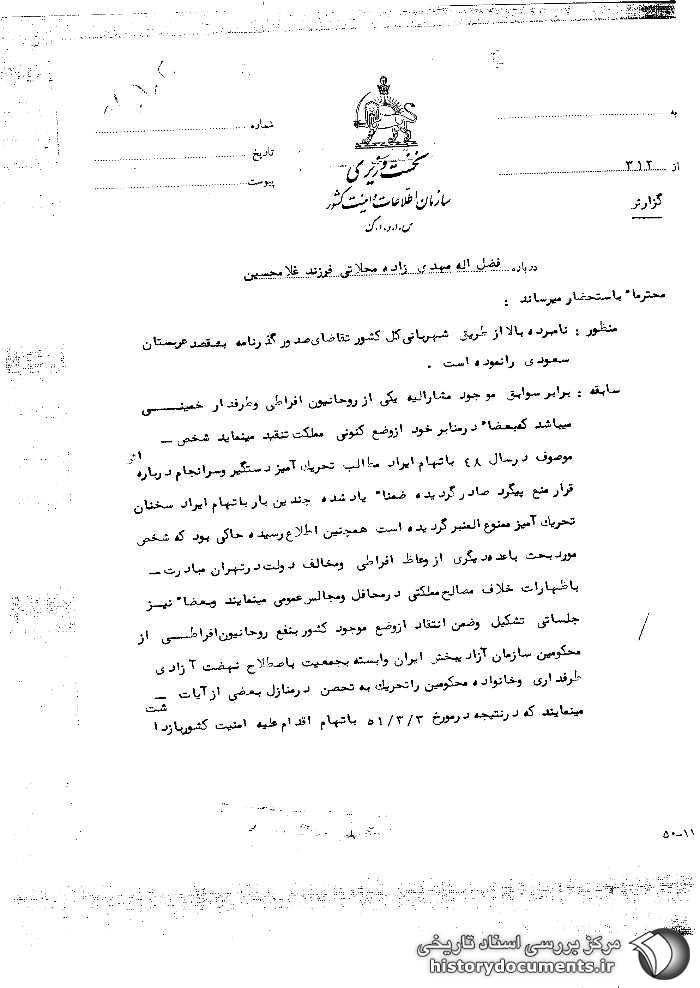 به
شماره
تاریخ
از ۳۱۲
پیوست
نخست وزیری
سازمان اطلاعات و امنیت کشور
س.ا.و.ا.ک
گزارش
درباره فضل اله مهدی زاده محلاتی فرزند غلامحسین
محترما" باستحضار میرساند :
منظور : نامبرده بالا از طریق شهربانی کل کشور تقاضای صدور گذرنامه بقصد عربستان
سعودی را نموده است .
سابقه : برابر سوابق موجود مشارالیه یکی از روحانیون افراطی وطرفدار خمینی
میباشد که بعضا" درمنابر خود از وضع کنونی مملکت تنقید مینماید شخص -
موصوف در سال ۴۸ باتهام ایراد مطالب تحریک آمیز دستگیر وسرانجام درباره اش
قرار منع پیگرد صادر گردیده ضمنا" یاد شده چندین بار باتهام ایراد سخنان
تحریک آمیز ممنوع المنبر گردیده است همچنین اطلاع رسیده حاکی بود که شخص
مورد بحث باعده دیگری از وعاظ افراطی ومخالف دولت در تهران مبادرت -
باظهارات خلاف مصالح مملکتی در محافل ومجالس عمومی مینمایند وبعضا" نیز
جلساتی تشکیل وضمن انتقاد از وضع موجود کشور بنفع روحانیون افراطی از
محکومین سازمان آزادیبخش ایران وابسته بجمعیت باصطلاح نهضت آزادی
طرفداری وخانواده محکومین راتحریک به تحصن درمنازل بعضی از آیات -
مینمایند که درنتیجه درمورخ ۵۱/۳/۳ باتهام اقدام علیه امنیت کشور بازداشت
۵۰-۱۱
مرکز بررسی اسناد تاریخی
historydocuments.ir